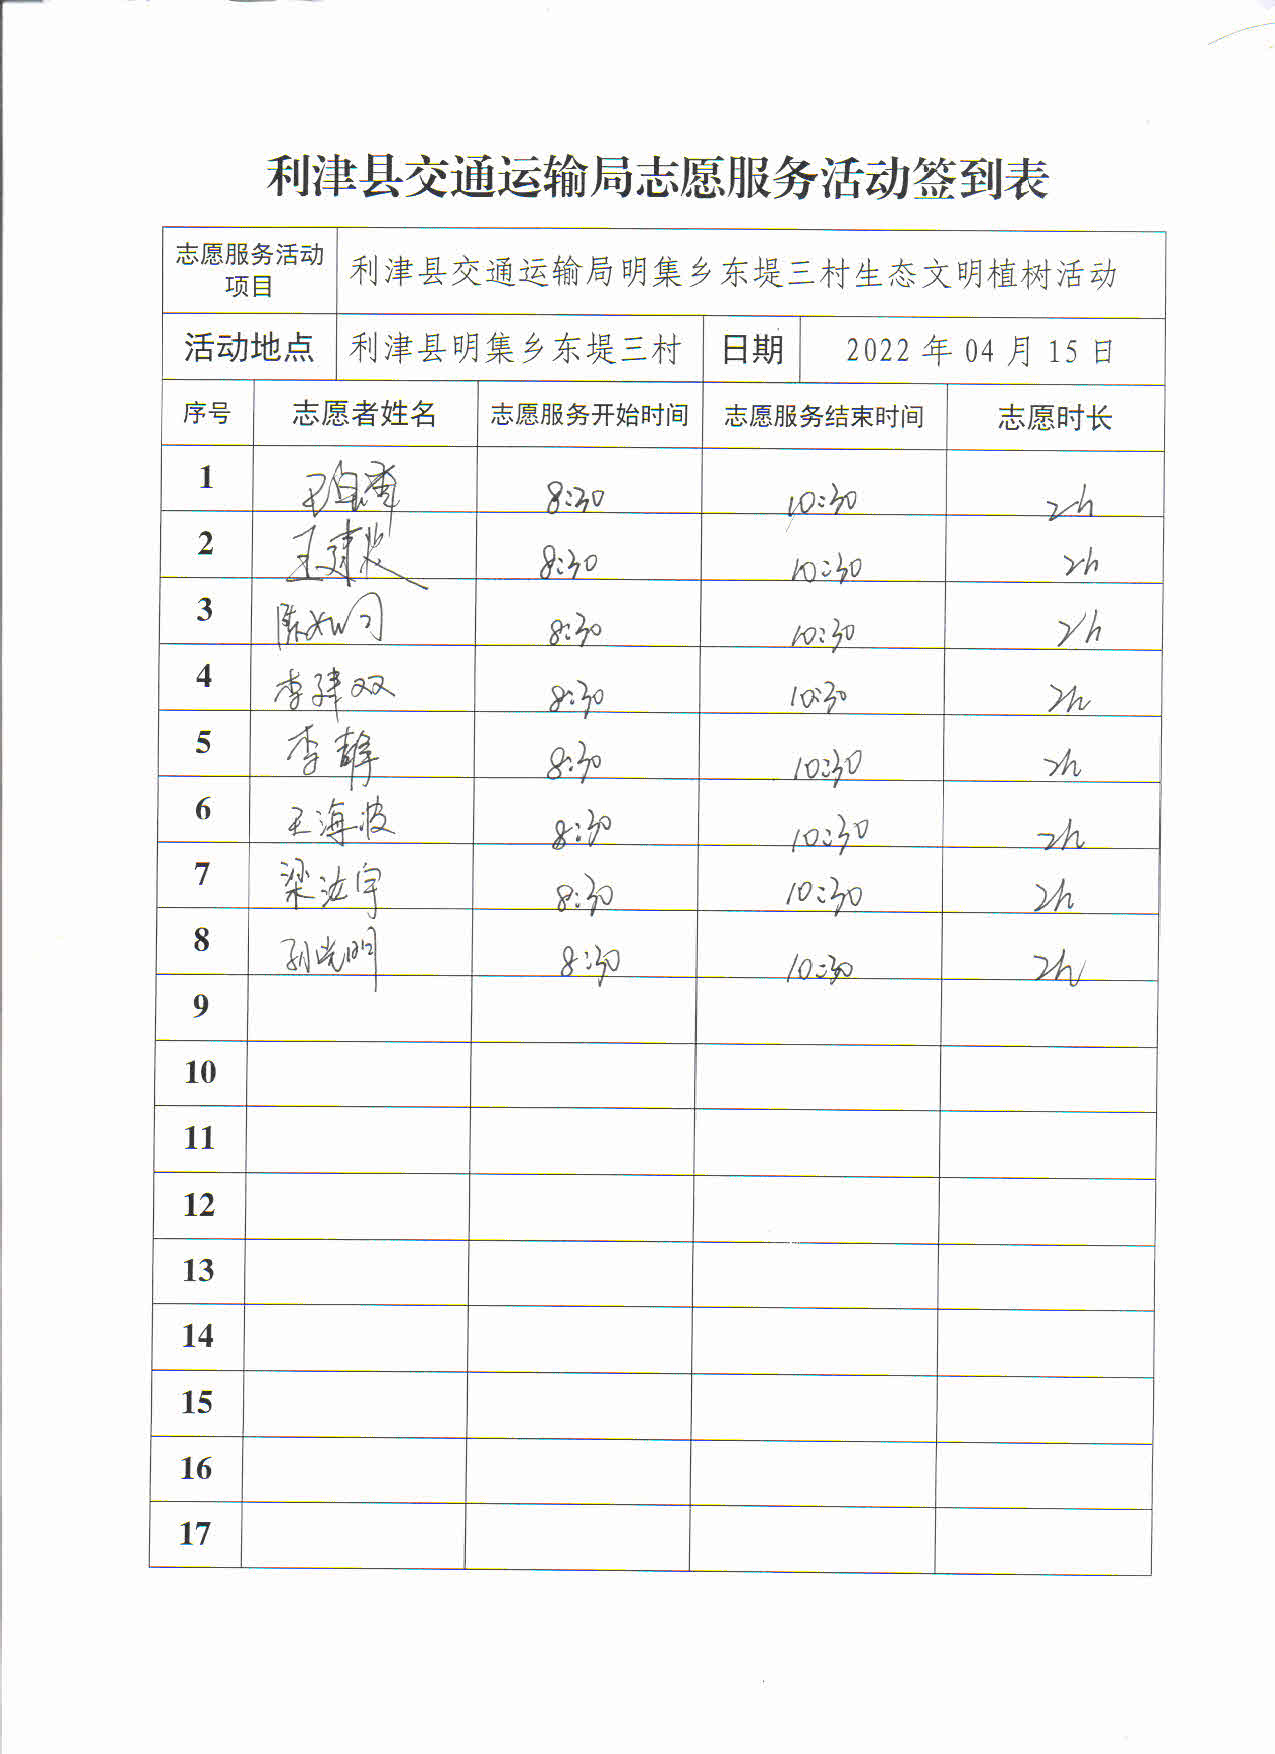 利津县交通运输局志愿服务活动签到表
志愿服务活动
项目
利津县交通运输局明集乡东堤三村生态文明植树活动
活动地点 利津县明集乡东堤三村 日期 2022 年 04 月 15 日
序号 志愿者姓名 志愿服务开始时间 志愿服务结束时间 志愿时长
1 8:30 10:30 2h
2 王建 8:30 10:30 2h
3 陈 8:30 10:30 2h
4 李建双 8:30 10:30 2h
5 李静 8:30 10:30 2h
6 王海波 8:30 10:30 2h
7 梁法宇 8:30 10:30 2h
8 孙光明 8:30 10:30 2h
9
10
11
12
13
14
15
16
17